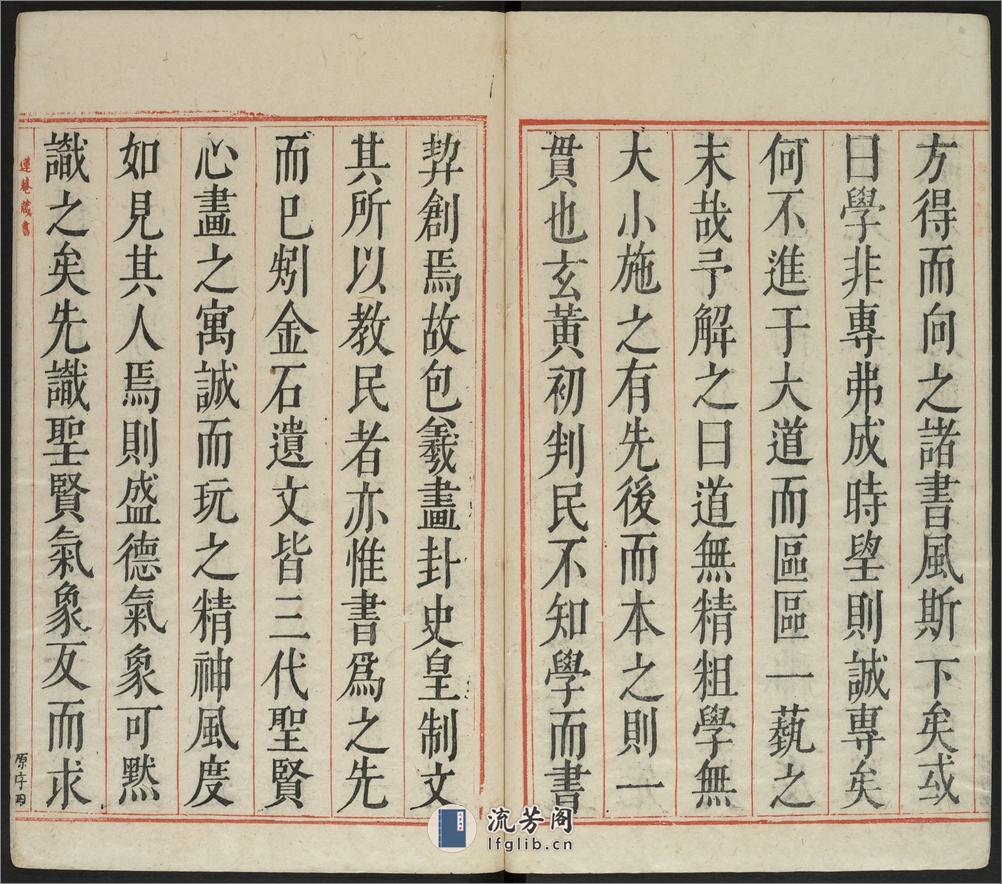 方得而向之諸書風斯下矣或
曰學非專弗成時朢則誠專矣
何不進于大道而區區一藝之
末哉予解之曰道無精粗學無
大小施之有先後而本之則一
貫也玄黃初判民不知學而書
契創焉故包羲畫卦史皇制文
其所以教民者亦惟書爲之先
而已矧金石遺文皆三代聖賢
心畫之寓誠而玩之精神風度
如見其人焉則盛德氣象可默
識之矣先識聖賢氣象反而求
蓮菴藏書
原序四
流芳阁
lfglib.cn